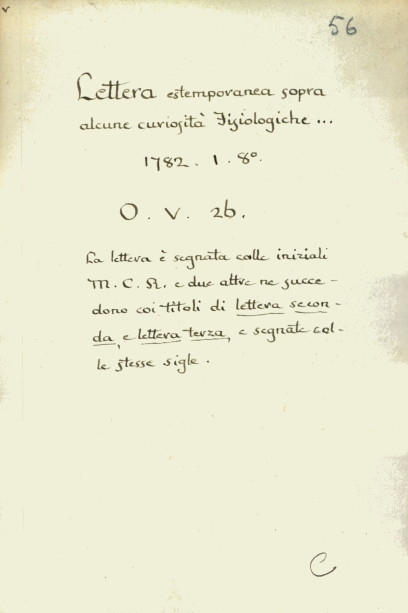 56
Lettera estemporanea sopra
alcune curiosità Fisiologiche ...
1782 . 1 . 8º.
O . V . 2b.
La lettera è segnata colle iniziali
M. C. R. e due altre ne succe-
dono coi titoli di lettera secon-
da, e lettera terza, e segnate col-
le stesse sigle .
C